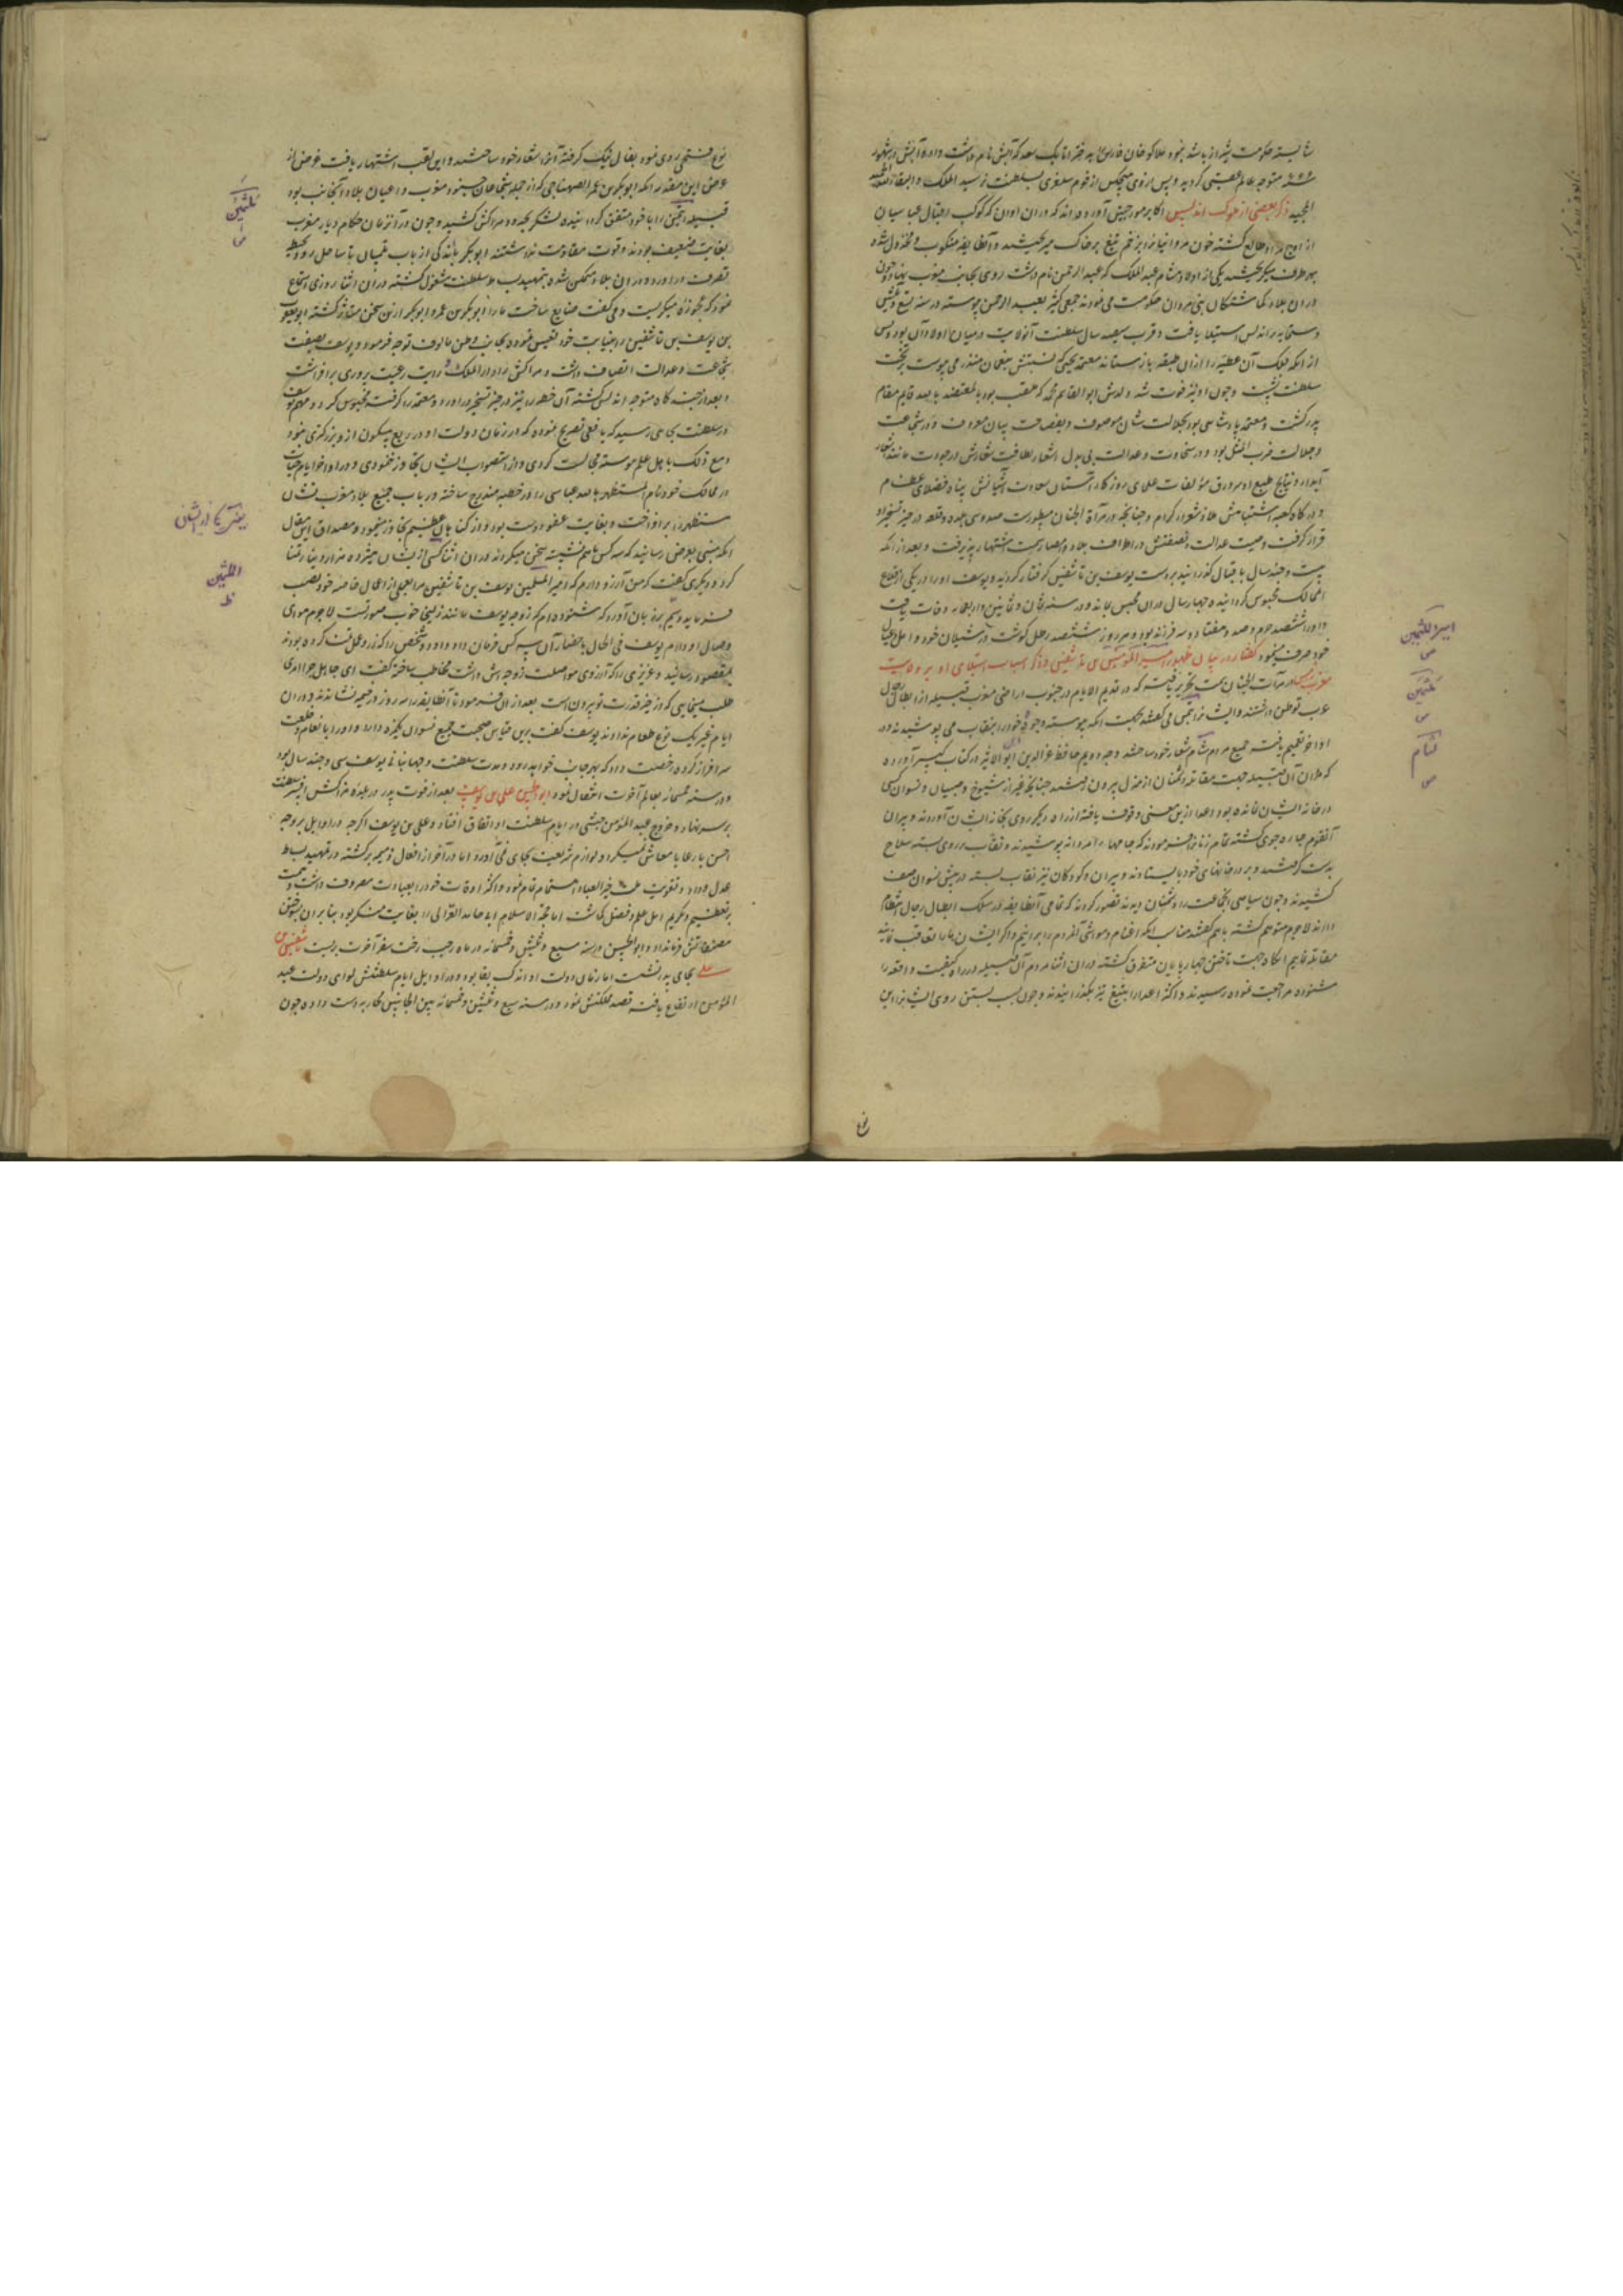 شایسته حکومت شیراز باشد نبود هلاکو خان فارس را به دختر اتابک سعد که آبش نام داشت داد و آبش در شهور
متوجه عالم عقبی گردید و پس از وی هیچکس از قوم سلغری بسلطنت نرسید الملک و البقاء لله
المجید ذکر بعضی از ملوک اندلس اکابر مورخین آورده اند که در ان اوان که کوکب اقبال عباسیان
از اوج مراد طالع گشته خون مروانیانرا بزخم تیغ بر خاک میریختند و آنطایفه منکوب و مخذول شده
بهر طرف میگریختند یکی از اولاد هشام عبد الملک که عبد الرحمن نام داشت روی بجانب مغرب نهاد و چون
در ان بلاد گماشتگان بنی مروان حکومت می نمودند جمعی کثیر بعبد الرحمن پیوسته در سنه
بر اندلس استیلا یافت و قرب سیصد سال سلطنت آنولایت در میان اولاد آن بود و پس
از انکه ملک آن عطیه را از ان طبقه باز ستاند معتمد یحیی که نسبتش بنعمان منذر می پیوست بر تخت
سلطنت نشست و چون او نیز فوت شد ولدش ابو القاسم محمد که ملقب بود بالمعتضد بالله قایم مقام
پدر گشت و معتمد پادشاهی بود بجلالت شان موصوف و بفصاحت بیان معروف و در شجاعت
و جلالت ضرب المثل بود و در سخاوت و عدالت بی بدل اشعار لطافت شعارش در جودت مانند
آبدار و نتایج طبع او سر ورق مؤلفات علمای روزگار آستان سعادت آشیانش پناه فضلای عظام
و درگاه کعبه اشتباهش ملاذ شعراء کرام و چنانچه در مرآة الجنان مسطورست صد و سی بلده و قلعه در حیز تسخیر او
قرار گرفت وصیت عدالت و نصفتش در اطراف بلاد و امصار سمت اشتهار پذیرفت و بعد از انکه
بیست و چند سال باقبال گذرانید بر دست یوسف بن تاشفین گرفتار گردید و یوسف او را در یکی از قلاع
انممالک محبوس گردانیده چهار سال در ان محبس بماند و در سنه ثمان و ثمانین و اربعمایه وفات یافت
و او را ششصد حرم و صد و هفتاد و سه فرزند بود و هر روز ششصد رطل گوشت در شیلان خود و اهل و عیال
خود صرف مینمود گفتار در بیان ظهور امیر الملثمین تاشفین و ذکر اسباب استیلای او بر ولایت
مغرب در مرآت الجنان سمت تحریر یافته که در قدیم الایام در جنوب اراضی مغرب قبیله از ابطال رجال
عرب توطن داشتند و ایشانرا ملثمین می گفتند بجهت انکه پیوسته وجوه خود را بنقاب می پوشیدند و در
اواخر تعمیم یافته جمیع مردم لثام شعار خود ساختند وجه دویم حافظ عز الدین ابن الاثیر در کتاب کبیر آورده
که مردان آن قبیله جهت مقاتله دشمنان از منزل بیرون رفتند چنانچه غیر از شیوخ و صبیان و نسوان کسی
در خانه ایشان نمانده بود و اعدا ازین معنی وقوف یافته از راه دیگر روی بخانه ایشان آوردند و پیران
آنقوم چاره جوی گشته تمام زنانرا فرمودند که جامهای مردانه پوشیدند و نقاب بر روی بسته سلاح
بدست گرفتند و بر در خانهای خود بایستادند و پیران و کودکان نیز نقاب بسته در پیش نسوان صف
کشیدند و چون سپاهی انجماعت را دشمنان دیدند تصور کردند که تمامی آنطایفه در سلک ابطال رجال انتظام
دارند لاجرم متوهم گشته باهم گفتند مناسب انکه اغنام و مواشی آنمردم را برانیم و اگر ایشان ما را تعاقب نمایند
مقاتله نماییم انگاه جهت تاختن چهارپایان متفرق گشته در ان اثنا مردم آن قبیله در راه کیفیت واقعه را
شنوده مراجعت نموده رسیدند و اکثر اعدا را بتیغ تیز بگذرانیدند و چون بسبب بستن روی ایشانرا این
امیر الملثمین
ملثمین
لثام
نوع فتحی روی نمود بفال نیک گرفته آنرا شعار خود ساختند و این لقب اشتهار یافت غرض از
عرض این مقدمه انکه ابوبکر بن عمر الصنهاجی که از جمله شجاعان جنود مغرب و اعیان بلاد آنجانب بود
قبیله ملثمین را با خود متفق گردانیده لشکر بحدود مراکش کشید و چون در آنزمان حکام دیار مغرب
بغایت ضعیف بودند و قوت مقاومت نداشتند ابوبکر باندکی از باب تلمسان تا ساحل رود محیط
تصرف در اورد و در ان بلاد متمکن شده بتمهید بساط سلطنت مشغول گشته در ان اثنا روزی استماع
نمود که عجوزه میگریست و می گفت ضایع ساخت ما را ابوبکر بن عمر و ابوبکر ازین سخن متاثر گشته ابو یعقوب
بن یوسف بن تاشفین را بنیابت خود تعیین نموده بجانب وطن مالوف توجه فرمود و یوسف بصفت
شجاعت و عدالت اتصاف داشت و مراکش را دار الملک ساخته رایت رعیت پروری برافراشت
و بعد از چند گاه متوجه اندلس گشته آن خطه را نیز در حیز تسخیر در اورد و معتمد را گرفته محبوس کرد و مهم یوسف
در سلطنت بجایی رسید که یافعی تصریح نموده که در زمان دولت او در ربع مسکون از و بزرگتری نبود
و مع ذلک با اهل علم پیوسته مجالست کردی و از استصواب ایشان تجاوز ننمودی و در اواخر ایام حیات
در ممالک خود نام المستظهر بالله عباسی را در خطبه مندرج ساخته در باب جمیع بلاد مغرب نشان
مستظهر را برافراخت و بغایت عفو دوست بود و از گناهان عظیم تجاوز مینمود و مصداق این مقال
انکه منهی بعرض رسانید که سه کس باهم نشسته سخن میکردند در ان اثنا کسی از ایشان هزار دینار تمنا
کرد و دیگری گفت که من آرزو دارم که امیر المسلمین یوسف بن تاشفین مرا بعملی از اعمال خاصه خود نصب
فرماید و سیم بر زبان آورد که شنوده ام که زوجه یوسف مانند زلیخا خوب صورتست لاجرم هوای
وصال او دارم یوسف فی الحال باحضار آن سه کس فرمان داد و دو شخص را که زر و عمل تمنا کرده بودند
بمقصود رسانید و عزیزی را که آرزوی مواصلت زوجه اش داشت مخاطب ساخته گفت ای جاهل چرا امری
طلب مینمایی که از حیز قدرت تو بیرون است بعد از ان فرمود تا آنطایفه را سه روز در خیمه نشاندند و در ان
ایام غیر یک نوع طعام ندادند یوسف گفت برین قیاس صحبت جمیع نسوان یک مزه دارد و او را بانعام و خلعت
سرافراز کرده رخصت داد که بهر جانب خواهد رود و مدت سلطنت و جهانبانی یوسف سی و چند سال بود
و در سنه خمسمائه بعالم آخرت انتقال نمود ابو الحسن علی بن یوسف بعد از فوت پدر در بلده مراکش افسر سلطنت
بر سر نهاد و خروج عبد المؤمن در ایام سلطنت او اتفاق افتاد و علی بن یوسف اگر چه در اوایل بر وجه
احسن با رعایا معاش میکرد و لوازم شریعت بجای می آورد اما در آخر از افعال ذمیمه برگشته در تمهید بساط
عدل و داد و تقویت خیر العباد اهتمام تمام نمود و اکثر اوقات خود را بعبادت مصروف داشت و همت
بر تعظیم و تکریم اهل علم و فضل گماشت اما حجة الاسلام ابا حامد الغزالی را بغایت منکر بود بنا بران بسوختن
مصنفاتش فرمان داد و ابو الحسن در سنه سبع و ثلثین و خمسمائه در ماه رجب رخت سفر آخرت بربست تاشفین بن
علی بجای پدر نشست اما زمان دولت او اندک بقا بود و در اوایل ایام سلطنتش لوای دولت عبد
المؤمن ارتفاع یافته قصد مملکتش نمود و در سنه سبع و ثلثین و خمسمائه بین الجانبین محاربه دست داده چون
ملثمین
الملثمین